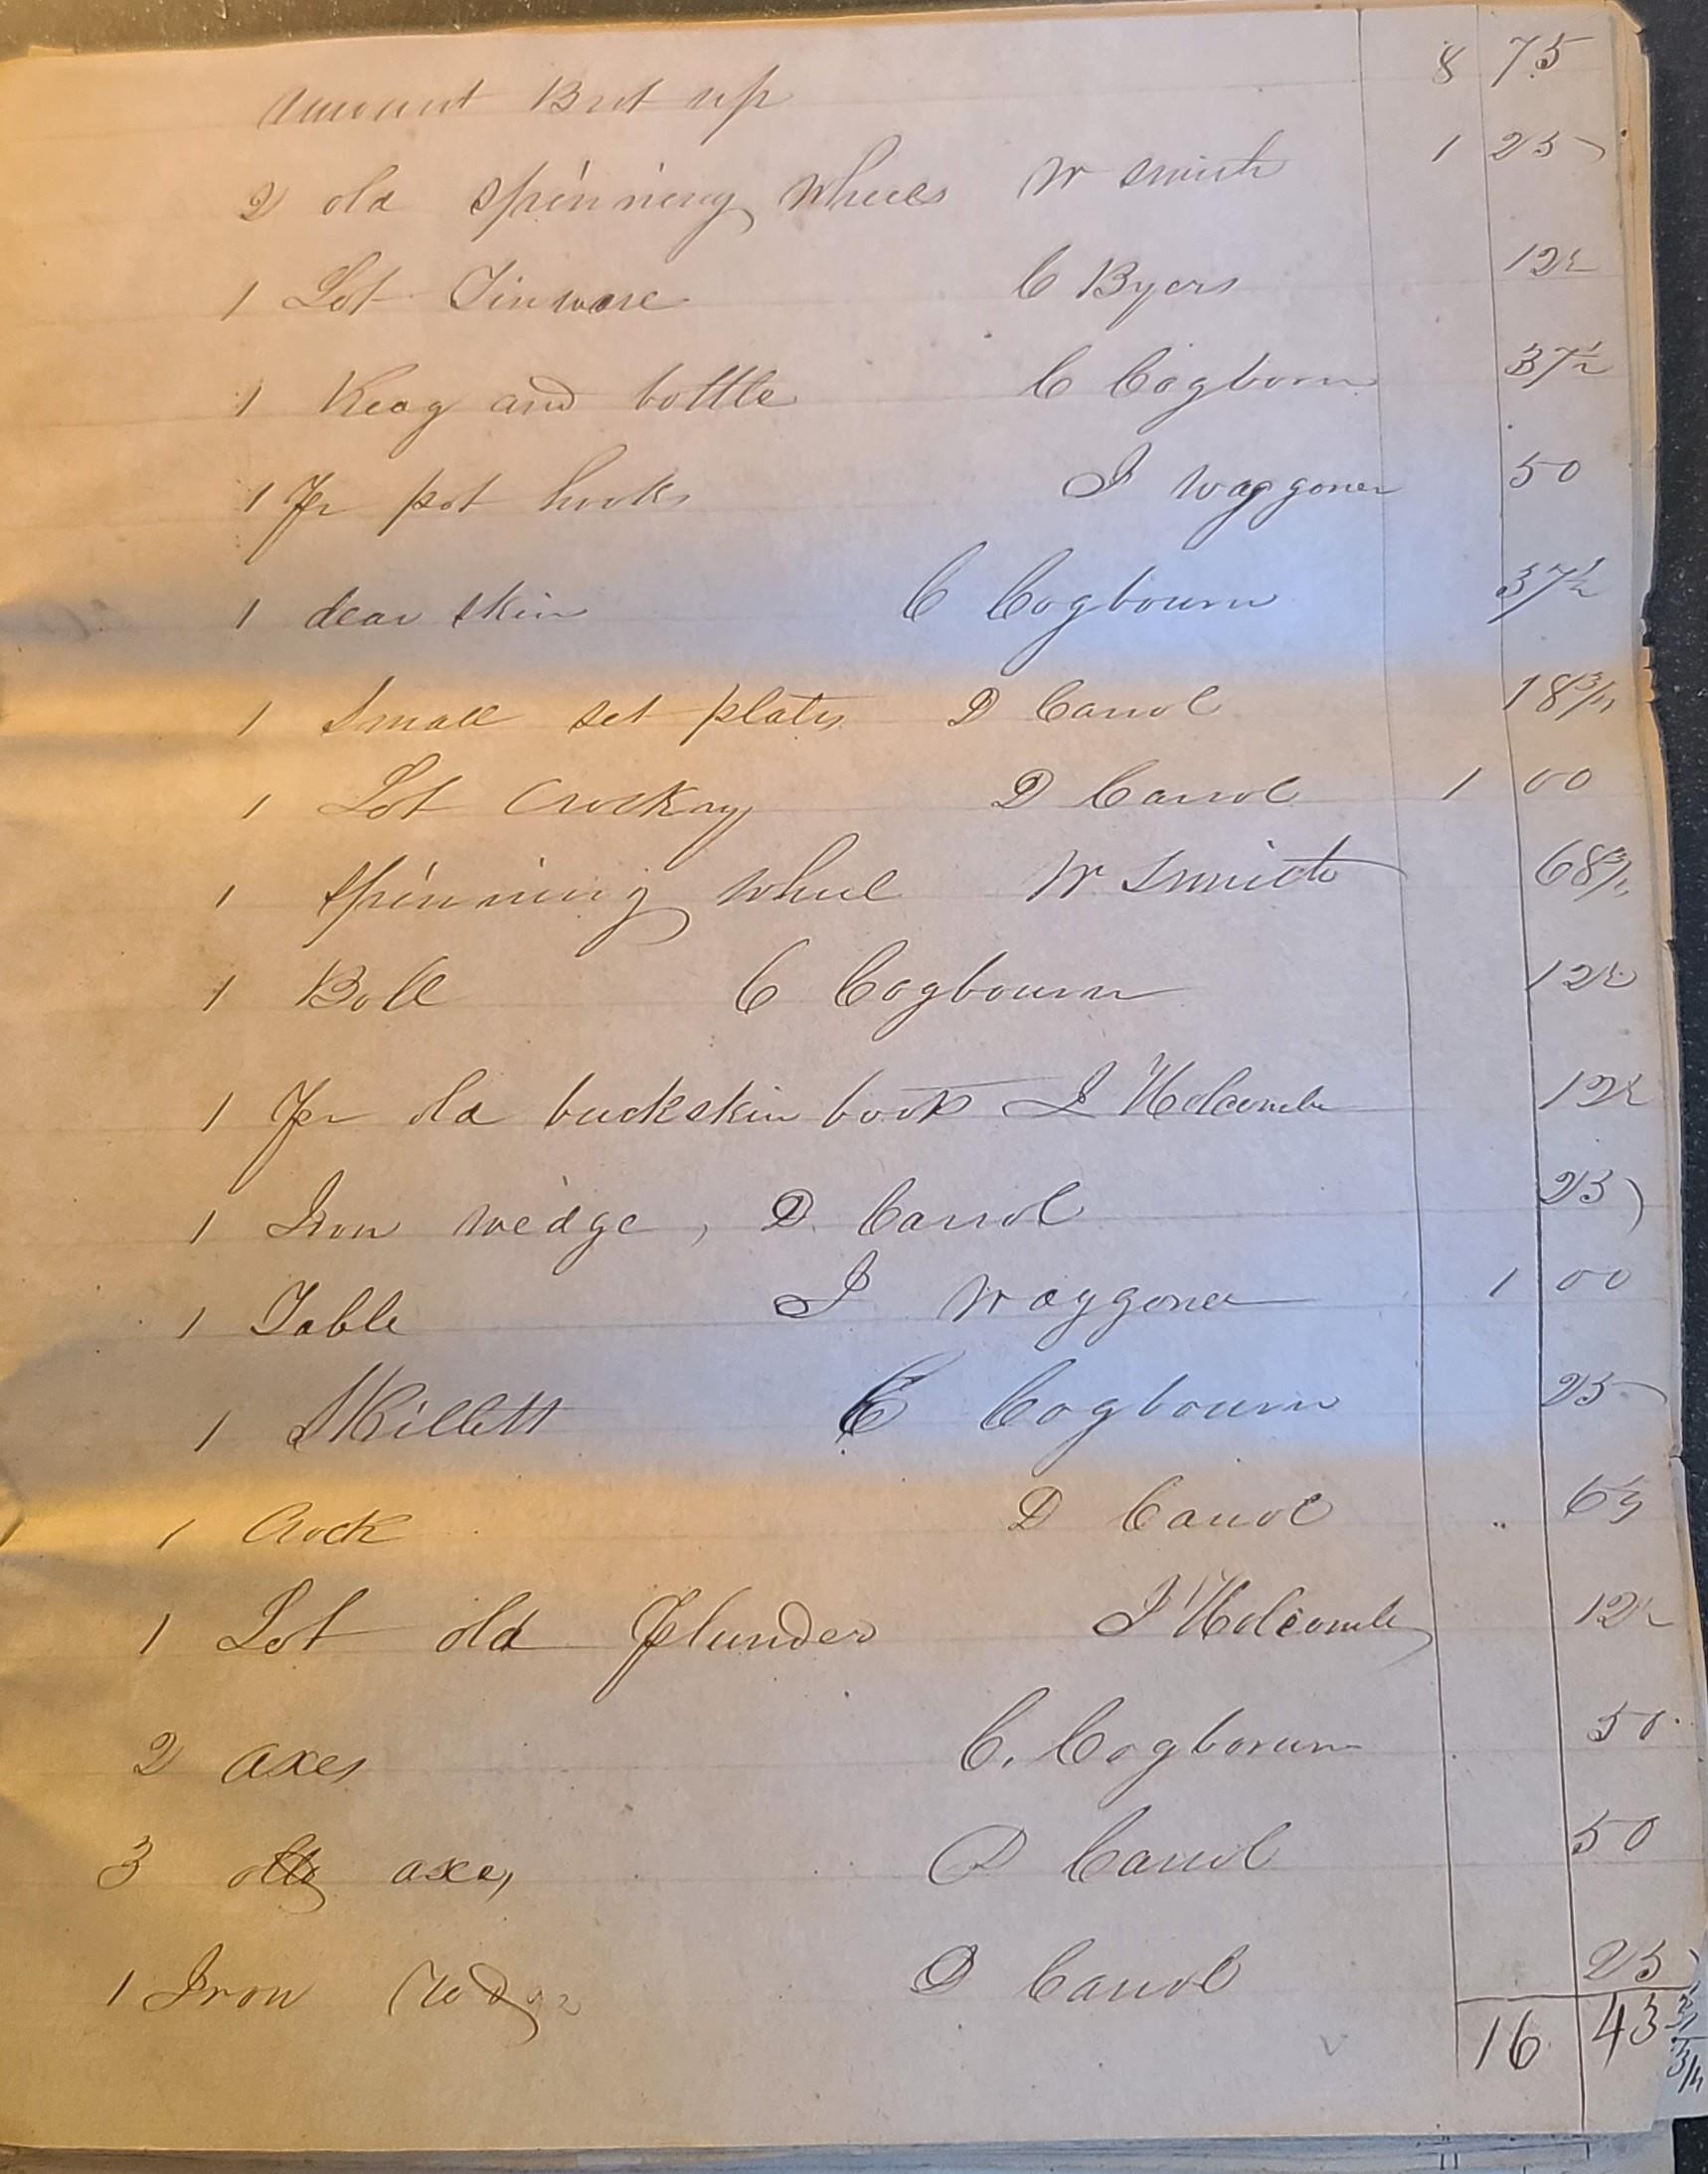 Amount Brot up 8 75
2 old spinning wheels W Smith 1 25
1 Lot Tinware C Byers 12½
1 Keag and bottle C Cogborn 37½
1 Pr pot hooks J Waggoner 50
1 dear skin C Cogbourn 37½
1 Small set plates D Carrol 18¾
1 Lot Crockry D Carrol 1 00
1 spinning wheel W Smith 68¾
1 Bell C Cogbourn 12½
1 Pr old buckskin boots J Holcomb 12½
1 Iron wedge, D Carrol 25
1 Table J Waggoner 1 00
1 Skillett C Cogbourn 25
1 Crock D Carrol 6¼
1 Lot old Plunder J Holcomb 12½
2 axes C. Cogbourn 50
3 axes D Carrol 50
1 Iron D Carrol 25
16 43